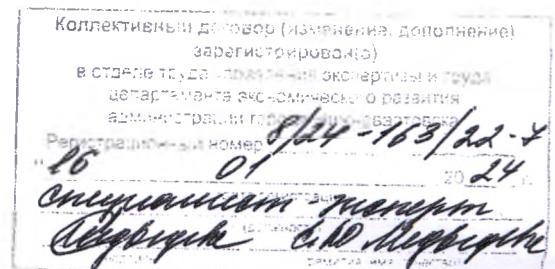 Коллективный договор (изменение, дополнение)
зарегистрирован(о)
в отделе труда управления экспертизы и труда
департамента экономического развития
администрации города
Регистрационный номер 8/24-163/22-7
"16 01 20 24 г.
специалист эксперт
Медведева